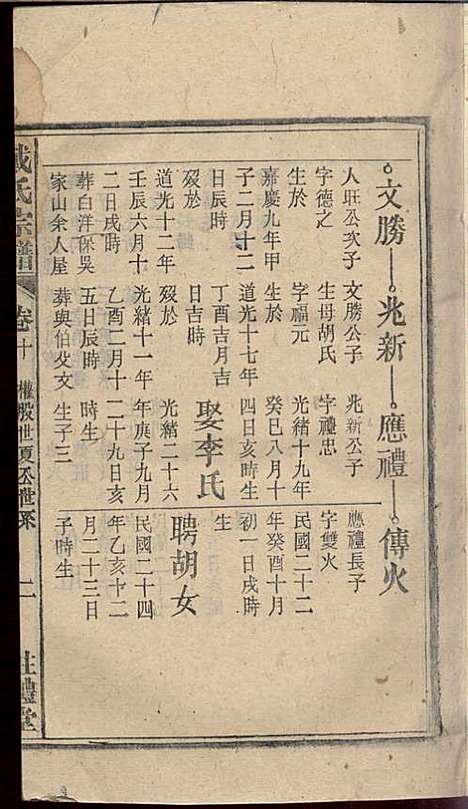 文勝 兆新 應禮 傳火
人旺公次子
字德之
生於
嘉慶九年甲
子二月十二
日辰時
歿於
道光十二年
壬辰六月十
二日戌時
葬白洋保吳
家山余人屋
文勝公子
生母胡氏
字福元
生於
道光十七年
丁酉吉月吉
日吉時
歿於
光緒十一年
乙酉二月十
五日辰時
葬與伯父文
兆新公子
字禮忠
光緒十九年
癸巳八月十
四日亥時生
娶李氏
光緒二十六
年庚子九月
二十九日亥
時生
生子三
應禮長子
字雙火
民國二十二
年癸酉十月
初一日戌時
生
聘胡女
民國二十四
年乙亥十二
月二十三日
子時生
戴氏宗譜
卷十
世系
二
禮堂